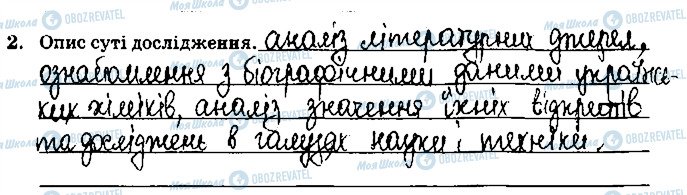 2. Опис суті дослідження. аналіз літературних джерел,
ознайомлення з біографічними даними українсь-
ких хіміків, аналіз значення їхніх відкриттів
та досліджень в галузях науки і техніки.